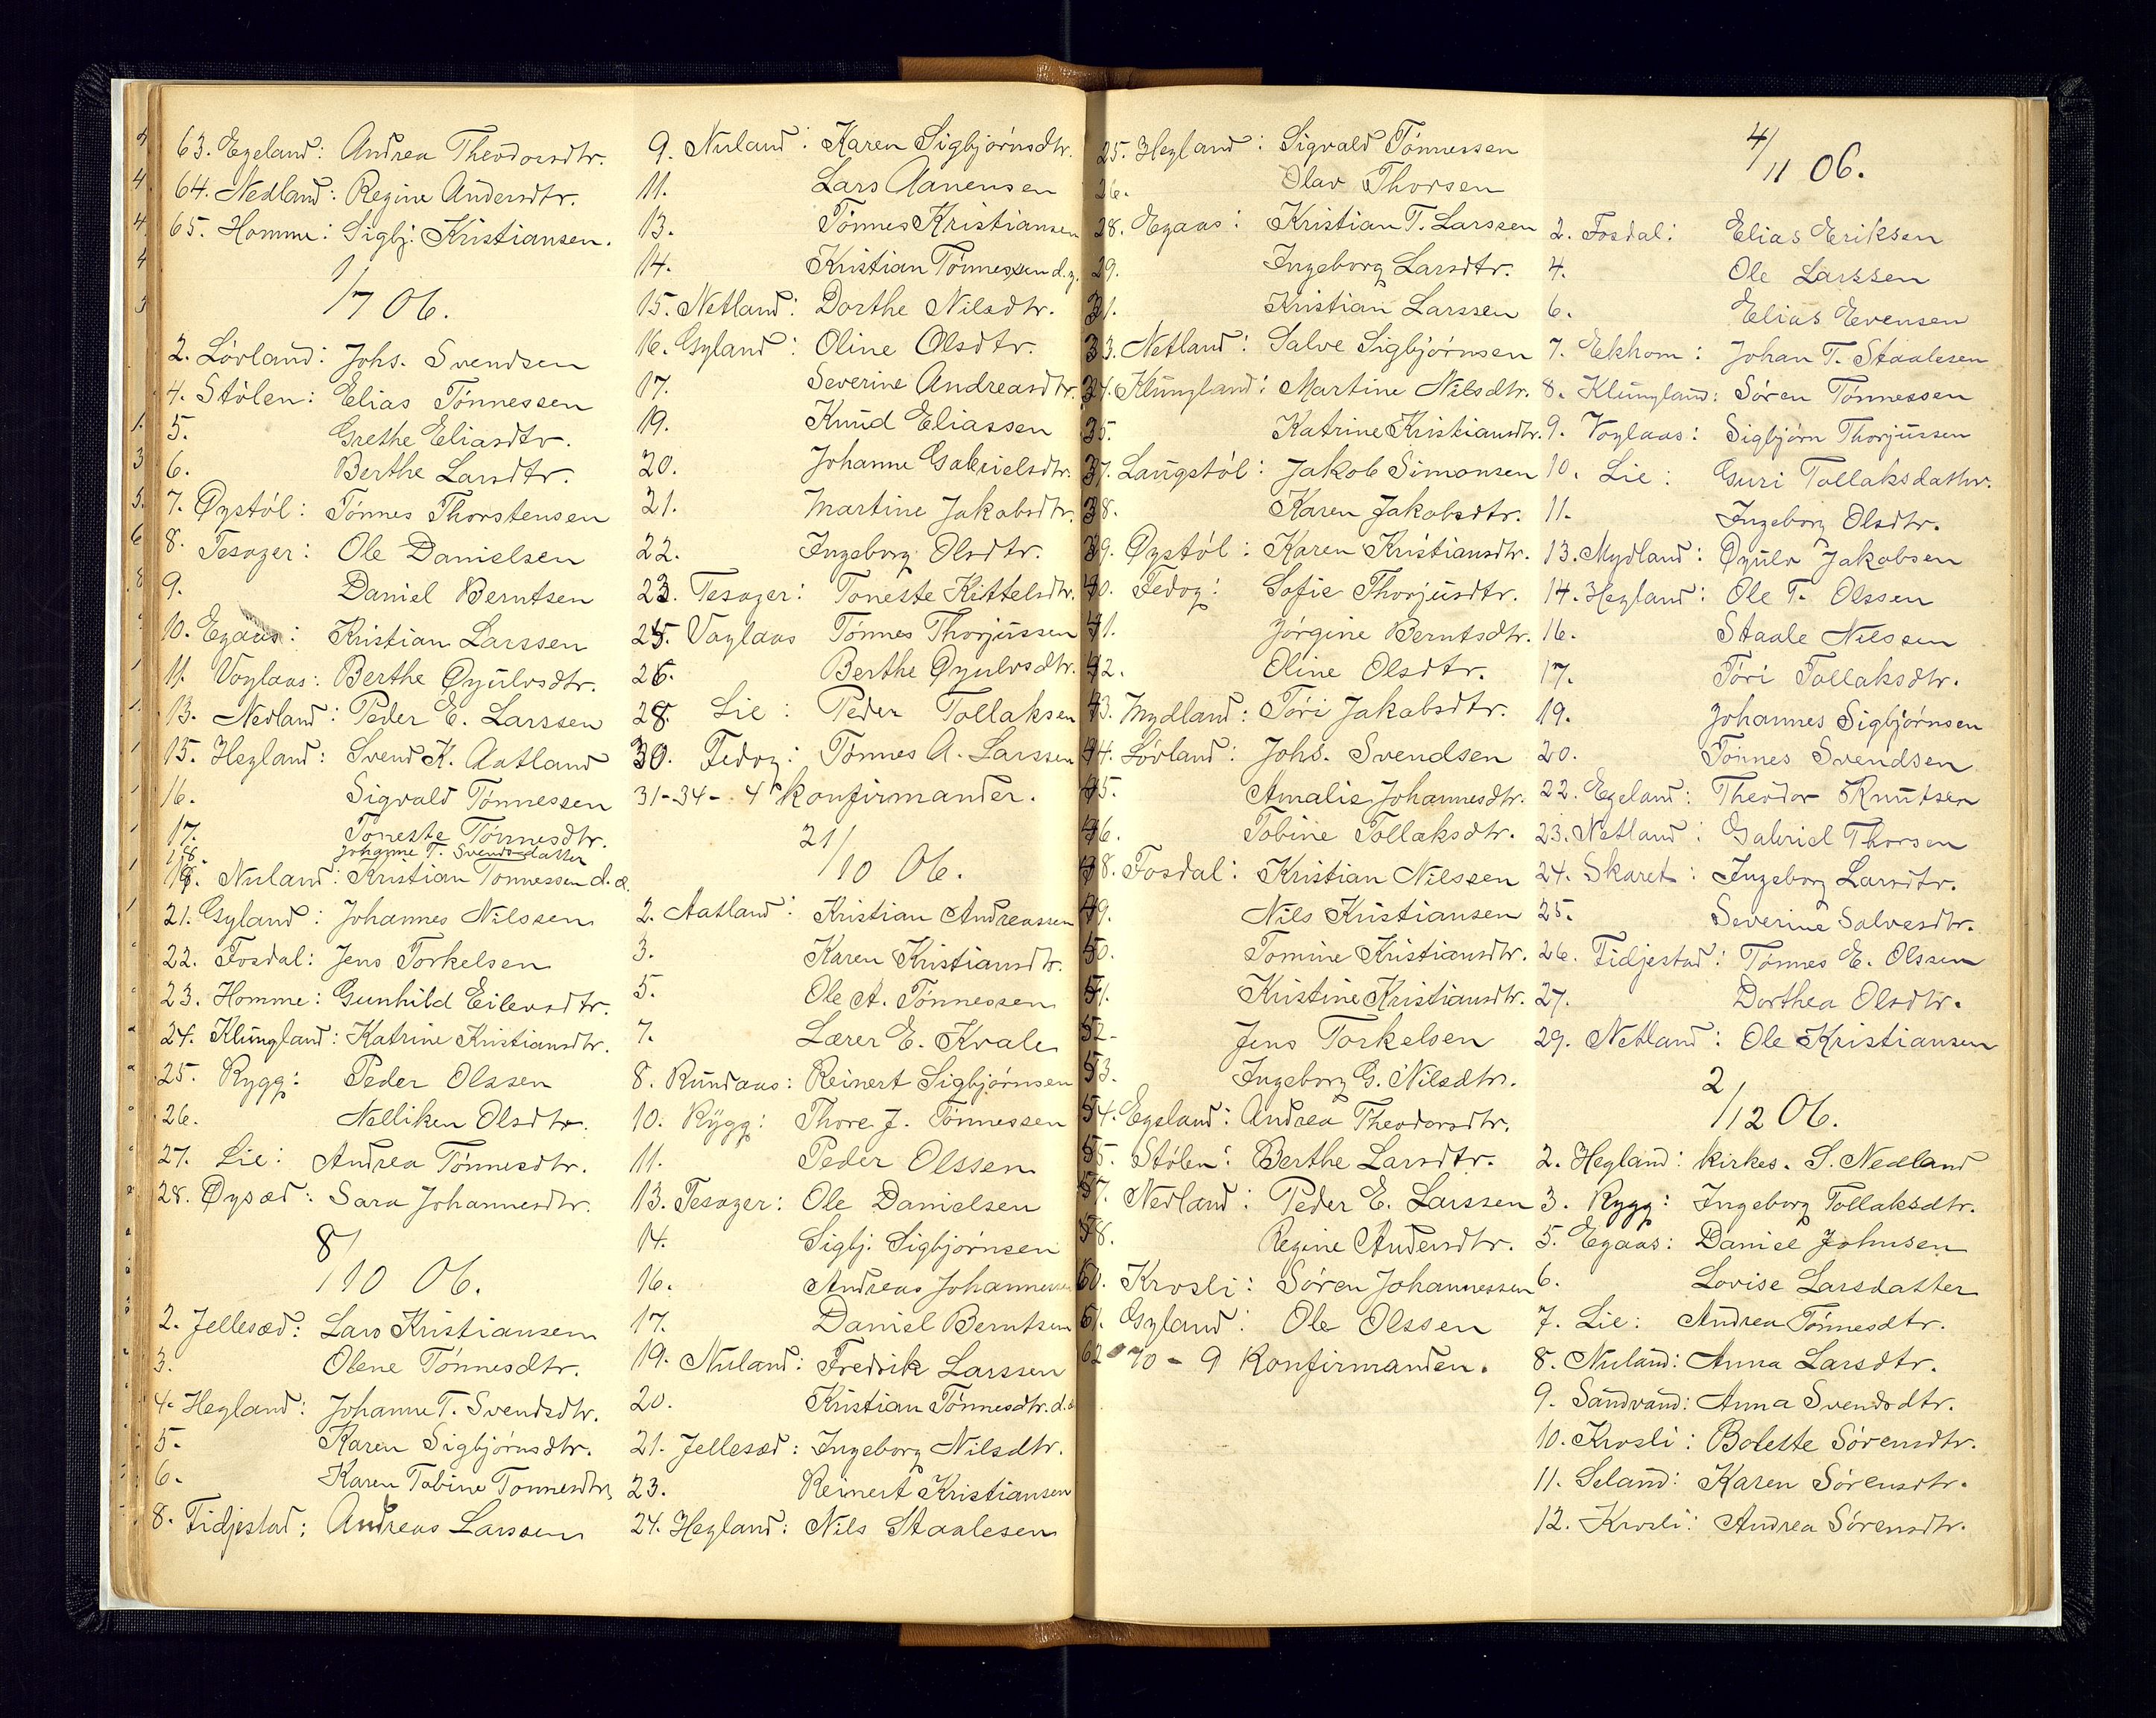 63. Egeland: Andrea Theodorsdtr.
64. Nedland: Regine Andersdtr.
65. Homme: Sigbj. Kristiansen.
1/7 06.
2. Lövland: Johs. Svendsen
4. Stölen: Elias Tönnessen
5. Grethe Eliasdtr.
6. Berthe Larsdtr.
7. Øystöl: Tönnes Thorstensen
8. Tesager: Ole Danielsen
9. Daniel Berntsen
10. Egaas: Kristian Larssen
11. Voglaas: Berthe Øyulvsdtr.
13. Nedland: Peder E. Larssen
15. Hegland: Svend K. Aatland
16. Sigvald Tönnessen
17. Toneste Tönnesdtr.
18. Johanne T. Svendsdatter
19. Nuland: Kristian Tönnessen d.æ.
21. Gyland: Johannes Nilssen
22. Fosdal: Jens Torkelsen
23. Homme: Gunhild Eilevsdtr.
24. Klungland: Katrine Kristiansdtr.
25. Rygg: Peder Olssen
26. Nelliken Olsdtr.
27. Lie: Andrea Tönnesdtr.
28. Øysæd: Sara Johannesdtr.
8/10 06.
2. Jellesæd: Lars Kristiansen
3. Olene Tönnesdtr.
4. Hegland: Johanne T. Svendsdtr.
5. Karen Sigbjörnsdtr.
6. Karen Tobine Tonnesdtr.
8. Fidjestad: Andreas Larssen
9. Nuland: Karen Sigbjörnsdtr.
11. Lars Aanensen
13. Tönnes Kristiansen
14. Kristian Tönnessen d.y.
15. Netland: Dorthe Nilsdtr.
16. Gyland: Oline Olsdtr.
17. Severine Andreasdtr.
19. Knud Eliassen
20. Johanne Gabrielsdtr.
21. Martine Jakobsdtr.
22. Ingeborg Olsdtr.
23. Tesager: Toneste Kittelsdtr.
25. Voglaas Tönnes Thorjussen
26. Berthe Øyulvsdtr.
28. Lie: Peder Tollaksen
30. Fedog: Tönnes A. Larssen
31-34 - 4 konfirmander.
21/10 06.
2. Aatland: Kristian Andreassen
3. Karen Kristiansdtr.
5. Ole A. Tönnessen
7. Lærer E. Kvale
8. Rundaas: Reinert Sigbjörnsen
10. Rygg: Thore J. Tönnessen
11. Peder Olssen
13. Tesager: Ole Danielsen
14. Sigbj. Sigbjörnsen
16. Andreas Johannessen
17. Daniel Berntsen
19. Nuland: Fredrik Larssen
20. Kristian Tönnesdtr. d.æ
21. Jellesæd: Ingeborg Nilsdtr.
23. Reinert Kristiansen
24. Hegland: Nils Staalesen
25. Hegland: Sigvald Tönnessen
26. Olav Thorsen
28. Egaas: Kristian T. Larssen
29. Ingeborg Larsdtr.
31. Kristian Larssen
33. Netland: Salve Sigbjörnsen
34. Klungland: Martine Nilsdtr.
35. Katrine Kristiansdtr.
37. Laugstöl: Jakob Simonsen
38. Karen Jakobsdtr.
39. Øystöl: Karen Kristiansdtr.
40. Fedog: Sofie Thorjusdtr.
41. Jörgine Berntsdtr.
42. Oline Olsdtr.
43. Mydland: Töri Jakobsdtr.
44. Lövland: Johs. Svendsen
45. Amalie Johannesdtr.
46. Tobine Tollaksdtr.
48. Fosdal: Kristian Nilssen
49. Nils Kristiansen
50. Tomine Kristiansdtr.
51. Kristine Kristiansdtr.
52. Jens Torkelsen
53. Ingeborg G. Nilsdtr.
54. Egeland: Andrea Theodorsdtr.
55. Stölen: Berthe Larsdtr.
57. Nedland: Peder E. Larssen
58. Regine Andersdtr.
60. Krosli: Sören Johannessen
61. Gyland: Ole Olssen
62-70 - 9 Konfirmanden.
4/11 06.
2. Fosdal: Elias Eriksen
4. Ole Larssen
6. Elias Evensen
7. Ekhom: Johan T. Staalesen
8. Klungland: Sören Tönnessen
9. Voglaas: Sigbjörn Thorjussen
10. Lie: Guri Tollaksdatter.
11. Ingeborg Olsdtr.
13. Mydland: Øyulv Jakobsen
14. Hegland: Ole T. Olssen
16. Staale Nilssen
17. Töri Tollaksdtr.
19. Johannes Sigbjörnsen
20. Tönnes Svendsen
22. Egeland: Theodor Knutsen
23. Netland: Gabriel Thorsen
24. Skaret: Ingeborg Larsdtr.
25. Severine Salvesdtr.
26. Fidjestad: Tönnes E. Olssen
27. Dorthea Olsdtr.
29. Netland: Ole Kristiansen
2/12 06.
2. Hegland: Kirkes. S. Nedland
3. Rygg: Ingeborg Tollaksdtr.
5. Egaas: Daniel Johnsen
6. Lovise Larsdatter
7. Lie: Andrea Tönnesdtr.
8. Nuland: Anna Larsdtr.
9. Sandvand: Anna Svendsdtr.
10. Krosli: Bolette Sörensdtr.
11. Seland: Karen Sörensdtr.
12. Krosli: Andrea Sörensdtr.